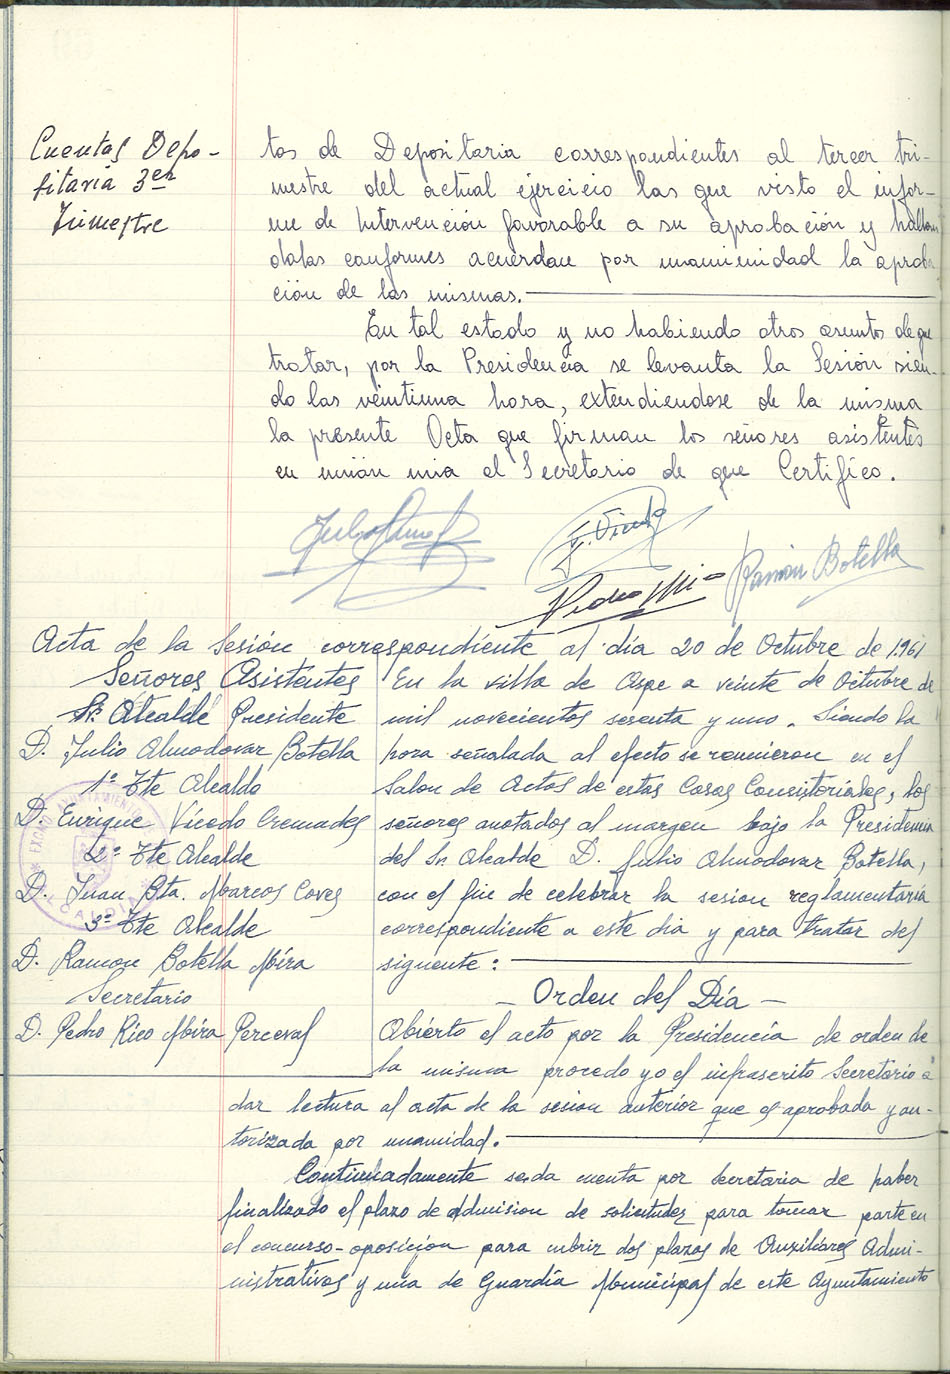 Cuentas Depo-
sitaria 3er
Trimestre
tas de Depositaria correspondientes al tercer tri-
mestre del actual ejercicio las que visto el infor-
me de Intervención favorable a su aprobación y hallan
dolas conformes acuerdan por unanimidad la aproba
ción de las mismas.
En tal estado y no habiendo otros asuntos de que
tratar, por la Presidencia se levanta la Sesión sien-
do las veintiuna hora, extendiendose de la misma
la presente Acta que firman los señores asistentes
en unión mia el Secretario de que Certifico.
Ramón Botella
Acta de la Sesión correspondiente al día 20 de Octubre de 1.961
Señores Asistentes
Sr. Alcalde Presidente
D. Julio Almodovar Botella
1º Tte Alcalde
D. Enrique Vicedo Cremades
2º Tte Alcalde
D. Juan Bta. Marcos Coves
3º Tte Alcalde
D. Ramon Botella Mira
Secretario
D. Pedro Rico Mira Perceval
En la villa de Aspe a veinte de Octubre de
mil novecientos sesenta y uno. Siendo la
hora señalada al efecto se reunieron en el
Salon de Actos de estas Casas Consistoriales, los
señores anotados al margen bajo la Presidencia
del Sr. Alcalde D. Julio Almodovar Botella,
con el fin de celebrar la sesion reglamentaria
correspondiente a este dia y para tratar del
siguente:
- Orden del Día -
Abierto el acto por la Presidencia de orden de
la misma procedo yo el infrascrito Secretario a
dar lectura al acta de la sesion anterior que es aprobada y au-
torizada por unanimidad.
Continuadamente se da cuenta por Secretaria de haber
finalizado el plazo de admision de solicitudes para tomar parte en
el concurso-oposicion para cubrir dos plazas de Auxiliares Admi-
nistrativos y una de Guardia Municipal de este Ayuntamiento